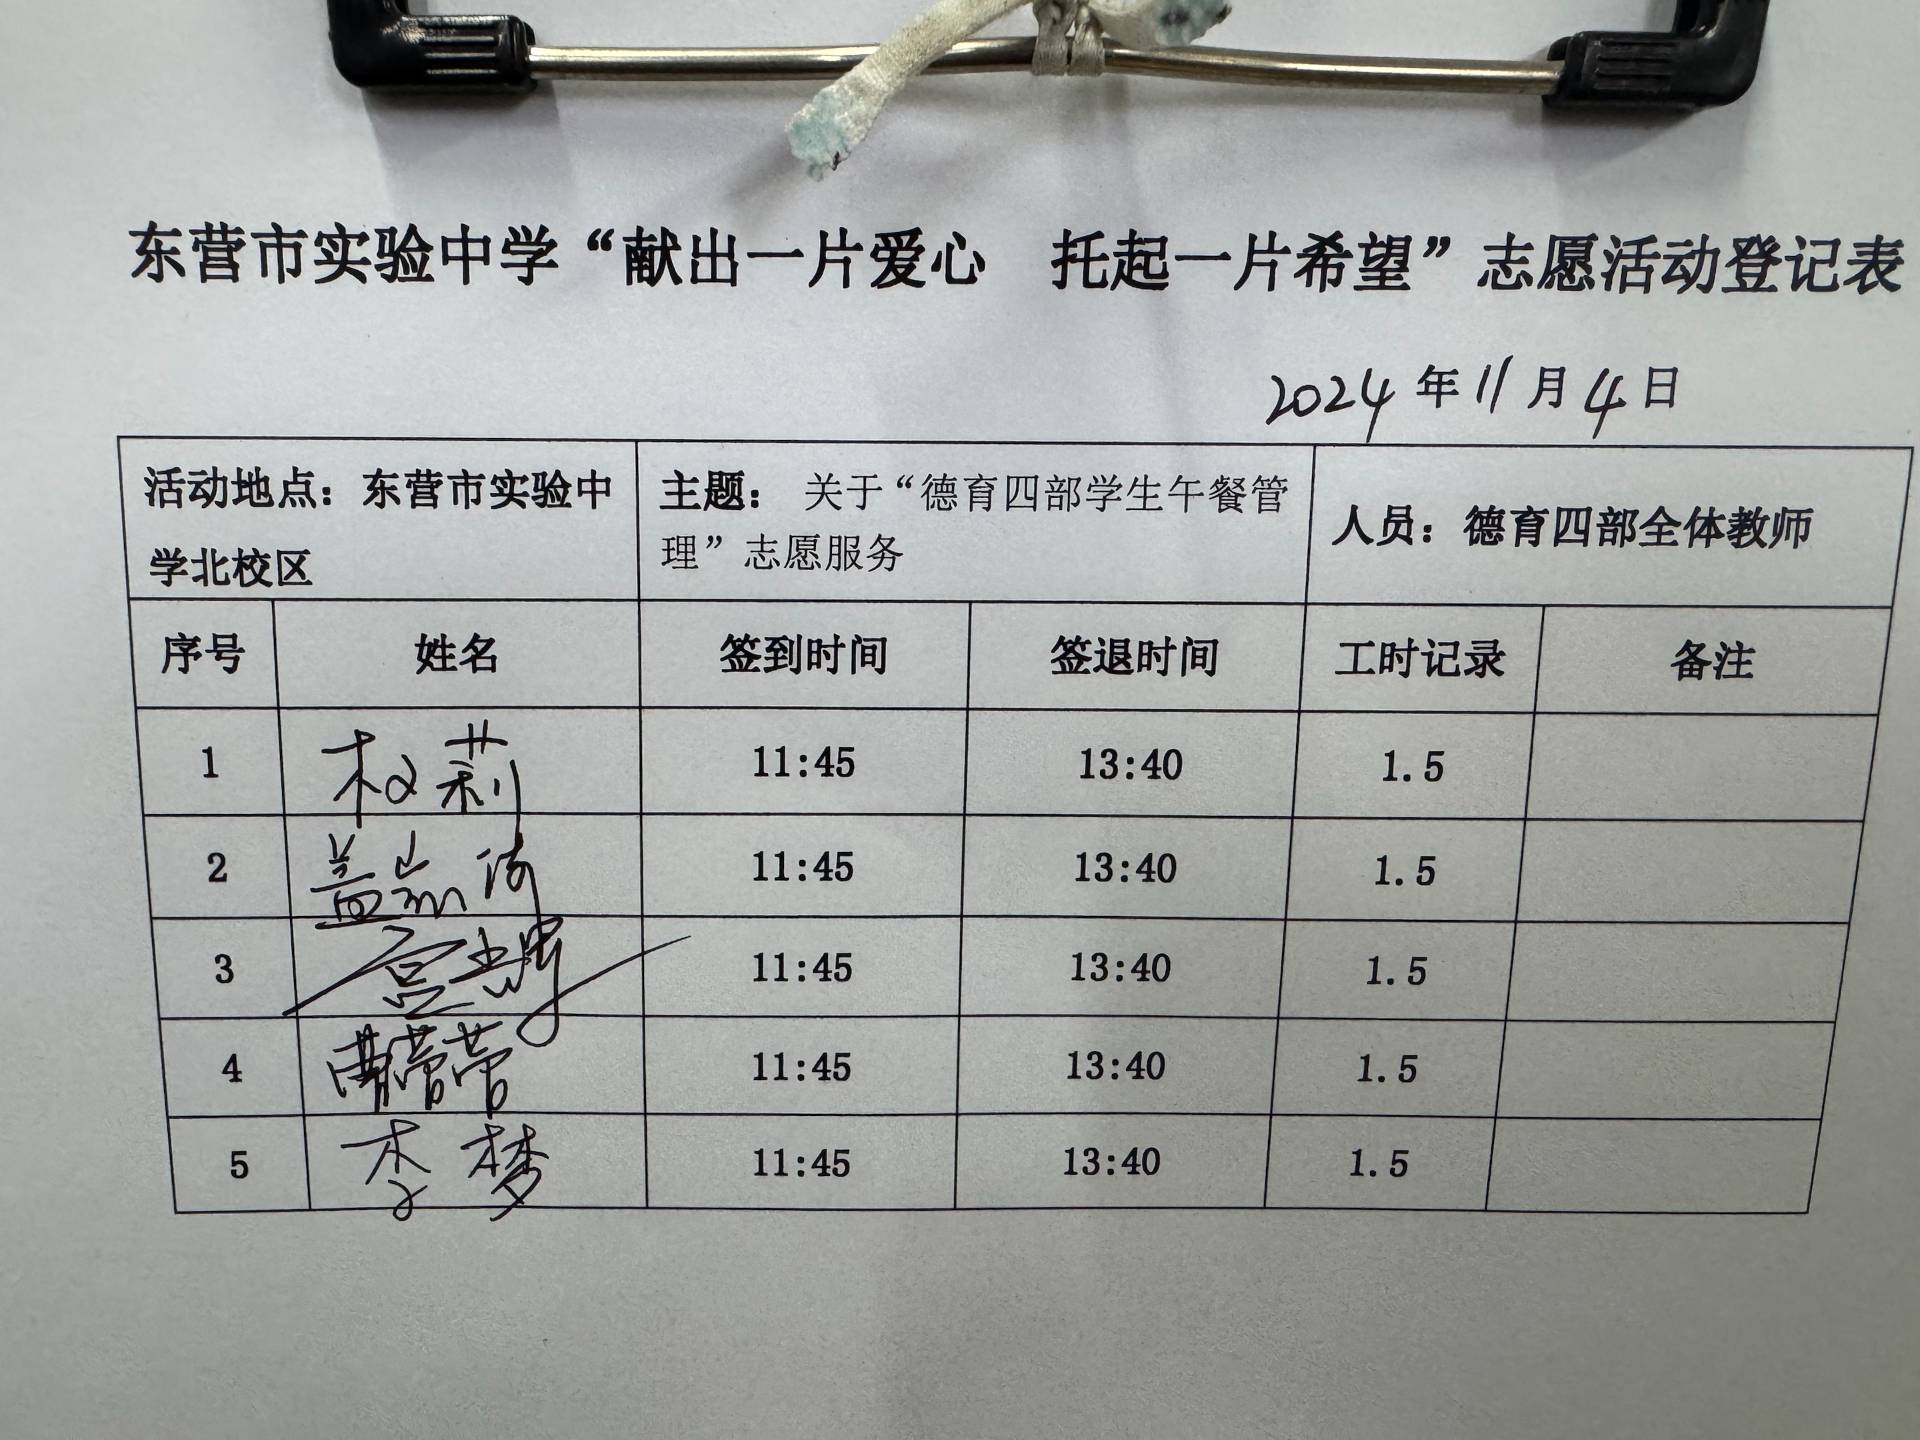 东营市实验中学“献出一片爱心 托起一片希望”志愿活动登记表
2024年11月4日
活动地点：东营市实验中
学北校区
主题： 关于“德育四部学生午餐管
理”志愿服务
人员：德育四部全体教师
序号 姓名 签到时间 签退时间 工时记录 备注
1 权莉 11:45 13:40 1.5
2 11:45 13:40 1.5
3 11:45 13:40 1.5
4 曹营营 11:45 13:40 1.5
5 李梦 11:45 13:40 1.5